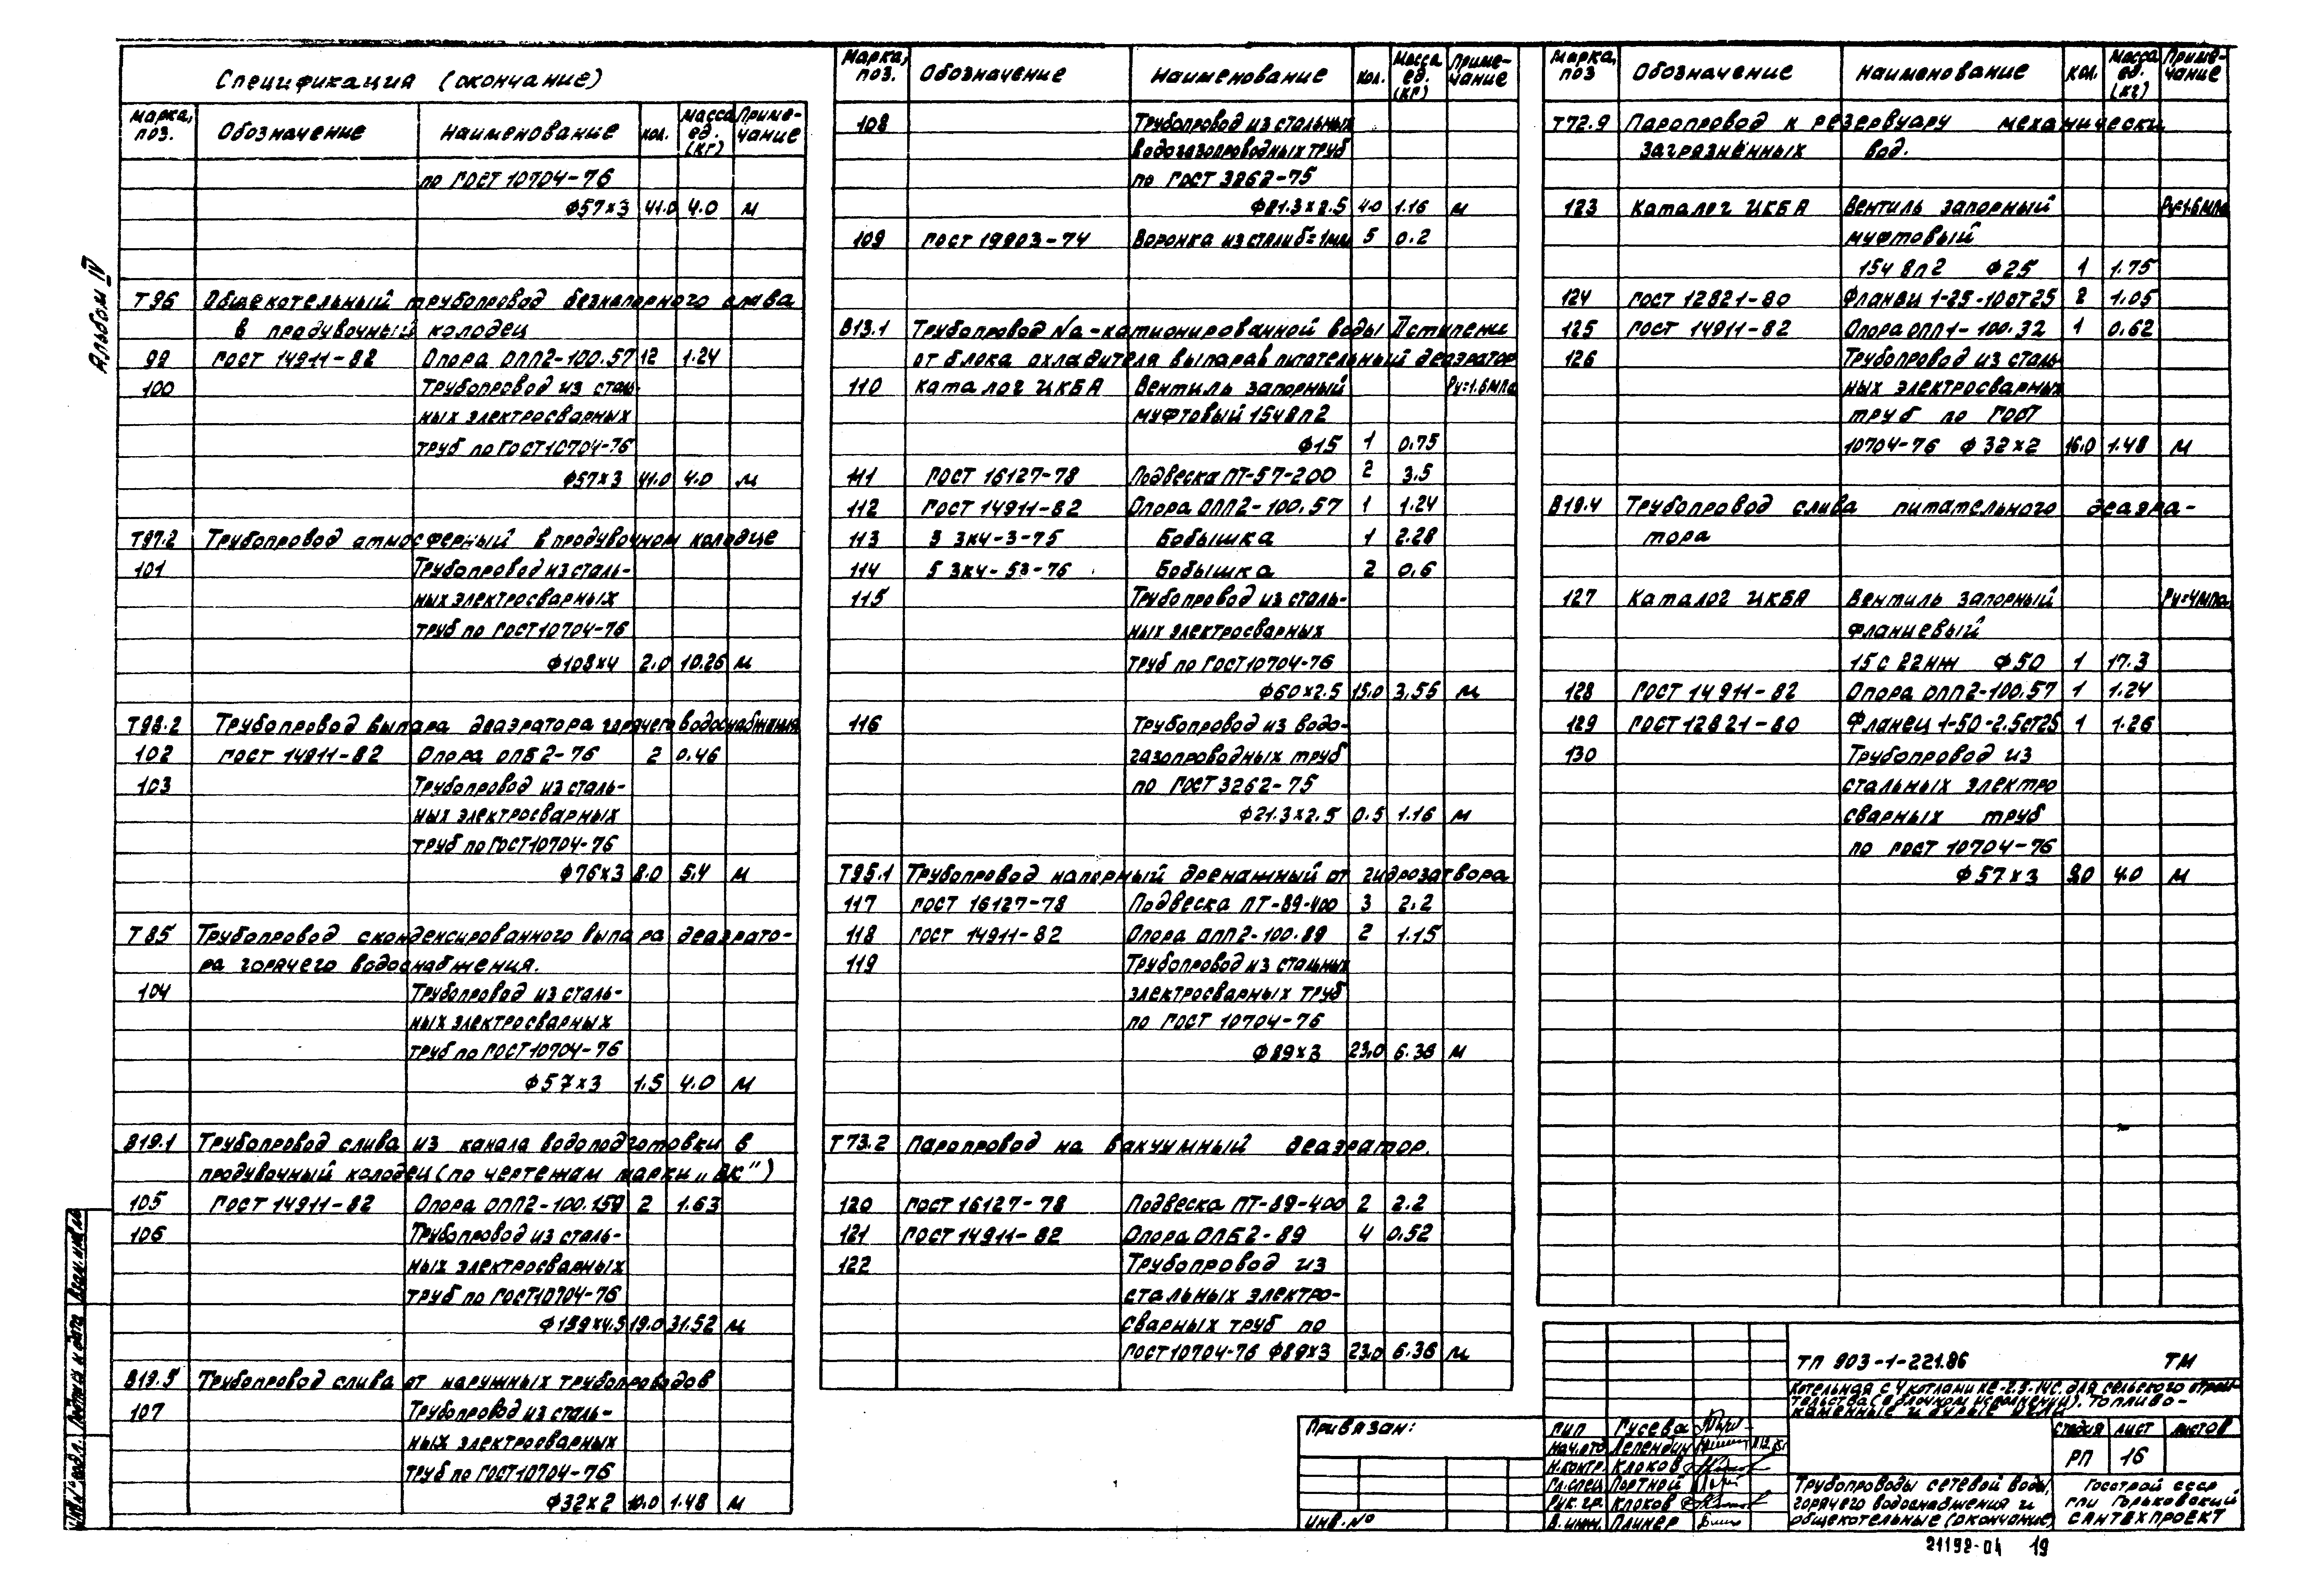 Альбом IV
Спецификация (окончание)
Марка, поз. Обозначение Наименование кол. Масса ед. (кг) Приме-чание
по ГОСТ 10704-76
Ф57×3 41.0 4.0 м
Т96 Общекотельный трубопровод безнапорного слива
в продувочный колодец
99 ГОСТ 14911-82 Опора ОПП2-100.57 12 1.24
100 Трубопровод из сталь-
ных электросварных
труб по ГОСТ 10704-76
Ф57×3 41.0 4.0 м
Т97.2 Трубопровод атмосферный в продувочном колодце
101 Трубопровод из сталь-
ных электросварных
труб по ГОСТ 10704-76
Ф108×4 2.0 10.26 м
Т98.2 Трубопровод выпара деаэратора горячего водоснабжения
102 ГОСТ 14911-82 Опора ОПБ2-76 2 0.46
103 Трубопровод из сталь-
ных электросварных
труб по ГОСТ 10704-76
Ф76×3 8.0 5.4 м
Т85 Трубопровод сконденсированного выпара деаэрато-
ра горячего водоснабжения.
104 Трубопровод из сталь-
ных электросварных
труб по ГОСТ 10704-76
Ф57×3 1.5 4.0 м
В19.1 Трубопровод слива из канала водоподготовки в
продувочный колодец (по чертежам марки „ВК")
105 ГОСТ 14911-82 Опора ОПП2-100.159 2 1.63
106 Трубопровод из сталь-
ных электросварных
труб по ГОСТ 10704-76
Ф159×4.5 19.0 31.52 м
В19.5 Трубопровод слива от наружных трубопроводов
107 Трубопровод из сталь-
ных электросварных
труб по ГОСТ 10704-76
Ф32×2 10.0 1.48 м
Марка, поз. Обозначение Наименование кол. Масса ед. (кг) Приме-чание
108 Трубопровод из стальных
водогазопроводных труб
по ГОСТ 3262-75
Ф21.3×2.5 4.0 1.16 м
109 ГОСТ 19903-74 Воронка из стали б=1мм 5 0.2
В13.1 Трубопровод Na-катионированной воды II ступени
от блока охладителя выпара в питательный деаэратор
110 Каталог ЦКБА Вентиль запорный Ру=1.6МПа
муфтовый 15ч8п2
Ф15 1 0.75
111 ГОСТ 16127-78 Подвеска ПТ-57-200 2 3.5
112 ГОСТ 14911-82 Опора ОПП2-100.57 1 1.24
113 3 ЗК4-3-75 Бобышка 1 2.28
114 5 ЗК4-53-76 Бобышка 2 0.6
115 Трубопровод из сталь-
ных электросварных
труб по ГОСТ 10704-76
Ф60×2.5 15.0 3.55 м
116 Трубопровод из водо-
газопроводных труб
по ГОСТ 3262-75
Ф21.3×2.5 0.5 1.16 м
Т95.1 Трубопровод напорный дренажный от гидрозатвора
117 ГОСТ 16127-78 Подвеска ПТ-89-400 3 2.2
118 ГОСТ 14911-82 Опора ОПП2-100.89 2 1.15
119 Трубопровод из стальных
электросварных труб
по ГОСТ 10704-76
Ф89×3 23.0 6.36 м
Т73.2 Паропровод на вакуумный деаэратор.
120 ГОСТ 16127-78 Подвеска ПТ-89-400 2 2.2
121 ГОСТ 14911-82 Опора ОПБ2-89 4 0.52
122 Трубопровод из
стальных электро-
сварных труб по
ГОСТ 10704-76 Ф89×3 23.0 6.36 м
Марка, поз Обозначение Наименование кол. Масса ед. (кг) Приме-чание
Т72.9 Паропровод к резервуару механически
загрязнённых вод.
123 Каталог ЦКБА Вентиль запорный Ру=1.6МПа
муфтовый
15ч8п2 Ф25 1 1.75
124 ГОСТ 12821-80 Фланец 1-25-10ст25 2 1.05
125 ГОСТ 14911-82 Опора ОПП1-100.32 1 0.62
126 Трубопровод из сталь-
ных электросварных
труб по ГОСТ
10704-76 Ф32×2 16.0 1.48 м
В19.4 Трубопровод слива питательного деаэра-
тора
127 Каталог ЦКБА Вентиль запорный Ру=4МПа
фланцевый
15с22нж Ф50 1 17.3
128 ГОСТ 14911-82 Опора ОПП2-100.57 1 1.24
129 ГОСТ 12821-80 Фланец 1-50-2.5ст25 1 1.26
130 Трубопровод из
стальных электро
сварных труб
по ГОСТ 10704-76
Ф57×3 4.0 м
ТП 903-1-221.86 ТМ
Котельная с 4 котлами КЕ-2.5-14С. для сельского строи-
тельства (в блочном исполнении). Топливо-
каменные и бурые угли
стадия лист листов
РП 16
Трубопроводы сетевой воды,
горячего водоснабжения и
общекотельные (окончание)
Госстрой СССР
ГПИ Горьковский
Сантехпроект
Привязан:
Инв.№
ГИП Гусева
Нач.отд Лепендин
Н.контр. Клоков
Гл.спец Портной
Рук.гр. Клоков
В.инж. Плинер
Инв.№ подл. Подпись и дата Взам.инв.№
21192-04 19